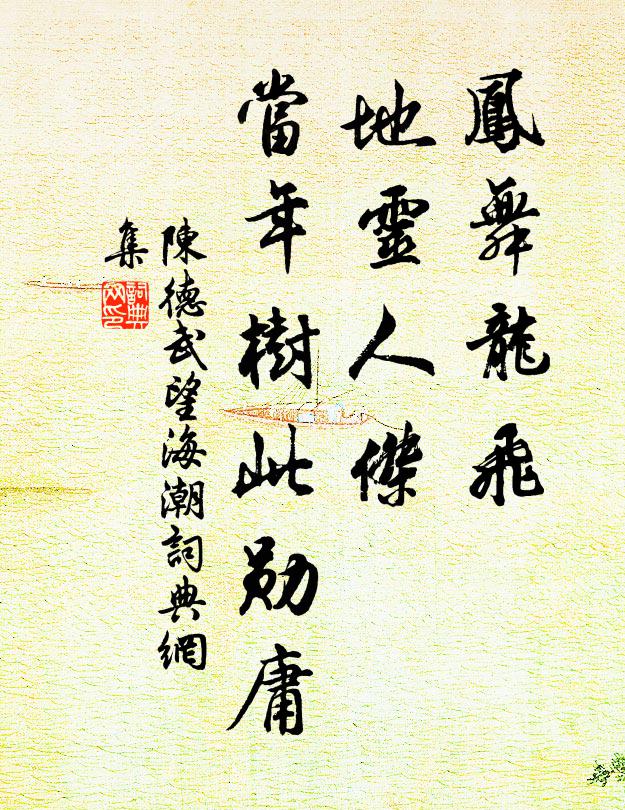 鳳舞龍飛
地靈人傑
當年樹此勛庸
陳德武望海潮詞典網
集
詞典網印